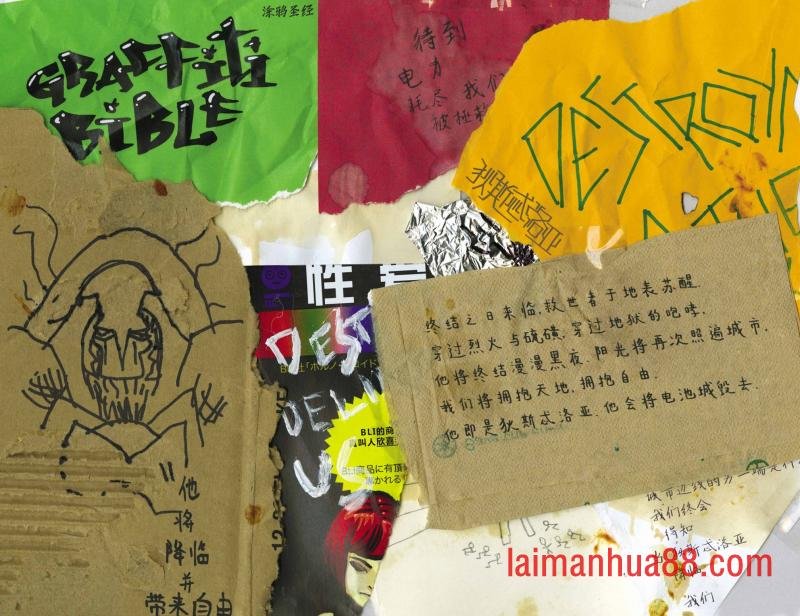 涂鸦圣经
GRAFFiTi
BiBLE
待到
电力
耗尽 我们
被拯救
DESTROY
狄斯忒洛亚
性
DEST
DELIV
US
BLI的商
真叫人欣喜
BLI商品に有頂
かれる
终结之日来临,救世者于地表苏醒,
穿过烈火与硫磺,穿过地狱的咆哮,
他将终结漫漫黑夜,阳光将再次照遍城市,
我们将拥抱天地,拥抱自由.
他即是狄斯忒洛亚.他会将电池城毁去.
"他
将
降临
并
带来自由
城市边线的另一端是什
我们终会
得知
斯忒洛亚
我们
laimanhua88.com